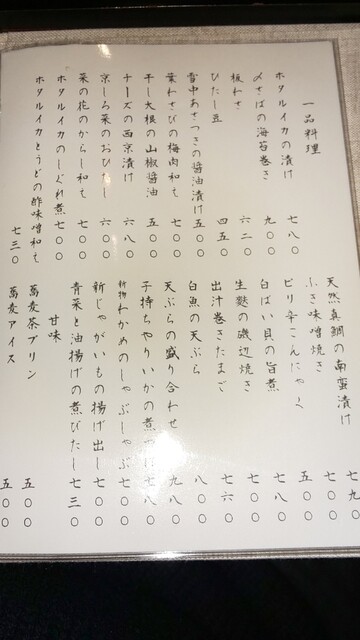 一品料理
ホタルイカの漬け 七八〇
〆さばの海苔巻き 九〇〇
板わさ 六二〇
ひたし豆 四五〇
雪中あさつきの醤油漬け 五〇〇
葉わさびの梅肉和え 七〇〇
干し大根の山椒醤油 五五〇
チーズの西京漬け 六八〇
京しろ菜のおひたし 六〇〇
菜の花のからし和え 七〇〇
ホタルイカのしぐれ煮 七〇〇
ホタルイカとうどの酢味噌和え 七三〇
天然真鯛の南蛮漬け 七九〇
ふき味噌焼き 五〇〇
ピリ辛こんにゃく 七〇〇
白ばい貝の旨煮 七八〇
生麩の磯辺焼き 七〇〇
出汁巻きたまご 七六〇
白魚の天ぷら 八〇〇
天ぷらの盛り合わせ 九八〇
子持ちやりいかの煮つけ 七八〇
新物わかめのしゃぶしゃぶ 七〇〇
新じゃがいもの揚げ出し 七〇〇
青菜と油揚げの煮びたし 七三〇
甘味
蕎麦茶プリン 五〇〇
蕎麦アイス 五〇〇